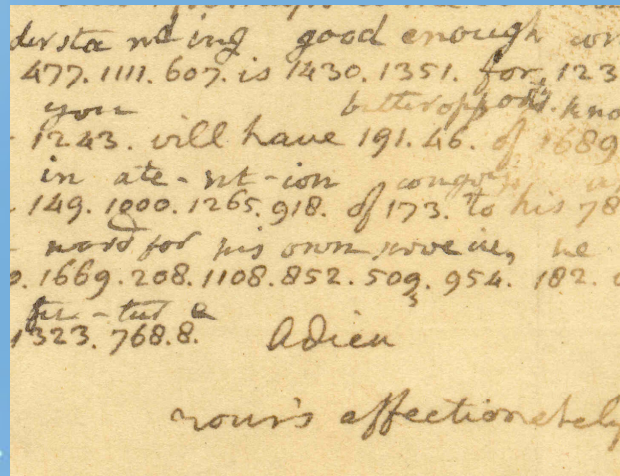 dersta nding good enough
477. 1111. 607. is 1430. 1351. for 123
you better opport
1243. will have 191. 46. of 1689
in ate-nt-ion
149. 1900. 1265. 918. of 173. to his 78
word for his own
1669. 208. 1108. 852. 509. 954. 182.
fu-tur e
1323. 768. 8. Adieu
Your's affectionately